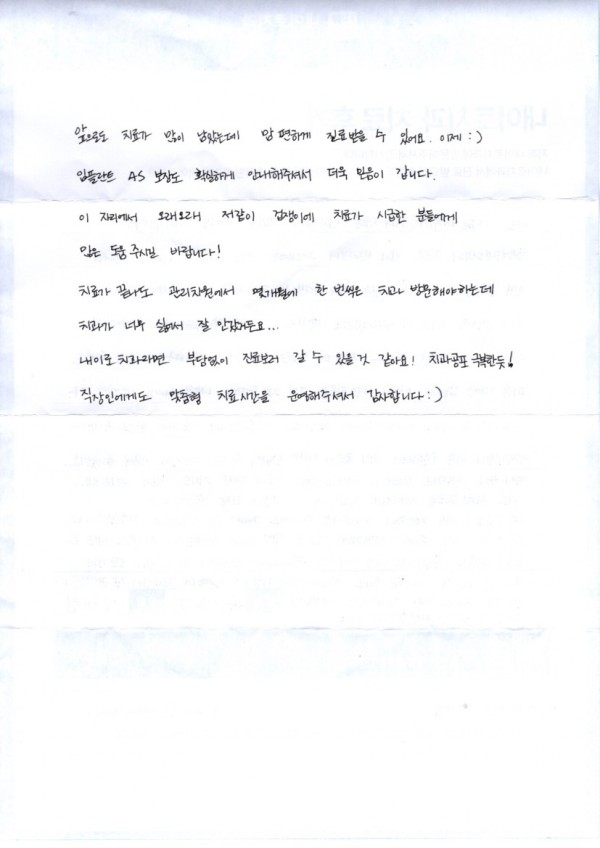 앞으로도 치료가 많이 남았는데 맘 편하게 진료받을 수 있어요. 이제 :)
임플란트 AS 보장도 확실하게 안내해주셔서 더욱 믿음이 갑니다.
이 자리에서 오래오래 저같이 겁쟁이에 치료가 시급한 분들에게
많은 도움 주시길 바랍니다!
치료가 끝나도 관리차원에서 몇개월에 한 번씩은 치과 방문해야하는데
치과가 너무 싫어서 잘 안갔거든요...
내이로치과라면 부담없이 진료보러 갈 수 있을 것 같아요! 치과공포 극복한듯!
직장인에게도 맞춤형 치료시간을 운영해주셔서 감사합니다 :)